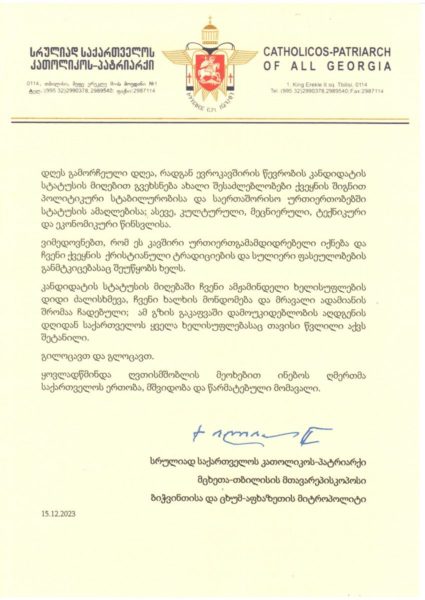 სრულიად საქართველოს
კათოლიკოს-პატრიარქი
0114, თბილისი, მეფე ერეკლე II-ის მოედანი №1
ტელ: (995 32)2990378,2989540 ფაქსი:2987114
CATHOLICOS-PATRIARCH
OF ALL GEORGIA
1, King Erekle II sq. Tbilisi, 0114
Tel.:(995 32)2990378, 2989540 Fax:2987114
დღეს გამორჩეული დღეა, რადგან ევროკავშირის წევრობის კანდიდატის
სტატუსის მიღებით გვეხსნება ახალი შესაძლებლობები ქვეყნის შიგნით
პოლიტიკური სტაბილურობისა და საერთაშორისო ურთიერთობებში
სტატუსის ამაღლებისა; ასევე, კულტურული, მეცნიერული, ტექნიკური
და ეკონომიკური წინსვლისა.
ვიმედოვნებთ, რომ ეს კავშირი ურთიერთგამამდიდრებელი იქნება და
ჩვენი ქვეყნის ქრისტიანული ტრადიციების და სულიერი ფასეულობების
განმტკიცებასაც შეუწყობს ხელს.
კანდიდატის სტატუსის მიღებაში ჩვენი ამჟამინდელი ხელისუფლების
დიდი ძალისხმევა, ჩვენი ხალხის მონდომება და მრავალი ადამიანის
შრომაა ჩადებული; ამ გზის გაკაფვაში დამოუკიდებლობის აღდგენის
დღიდან საქართველოს ყველა ხელისუფლებასაც თავისი წვლილი აქვს
შეტანილი.
გილოცავთ და გლოცავთ.
ყოვლადწმინდა ღვთისმშობლის მეოხებით ინებოს ღმერთმა
საქართველოს ერთობა, მშვიდობა და წარმატებული მომავალი.
სრულიად საქართველოს კათოლიკოს-პატრიარქი
მცხეთა-თბილისის მთავარეპისკოპოსი
ბიჭვინთისა და ცხუმ-აფხაზეთის მიტროპოლიტი
15.12.2023